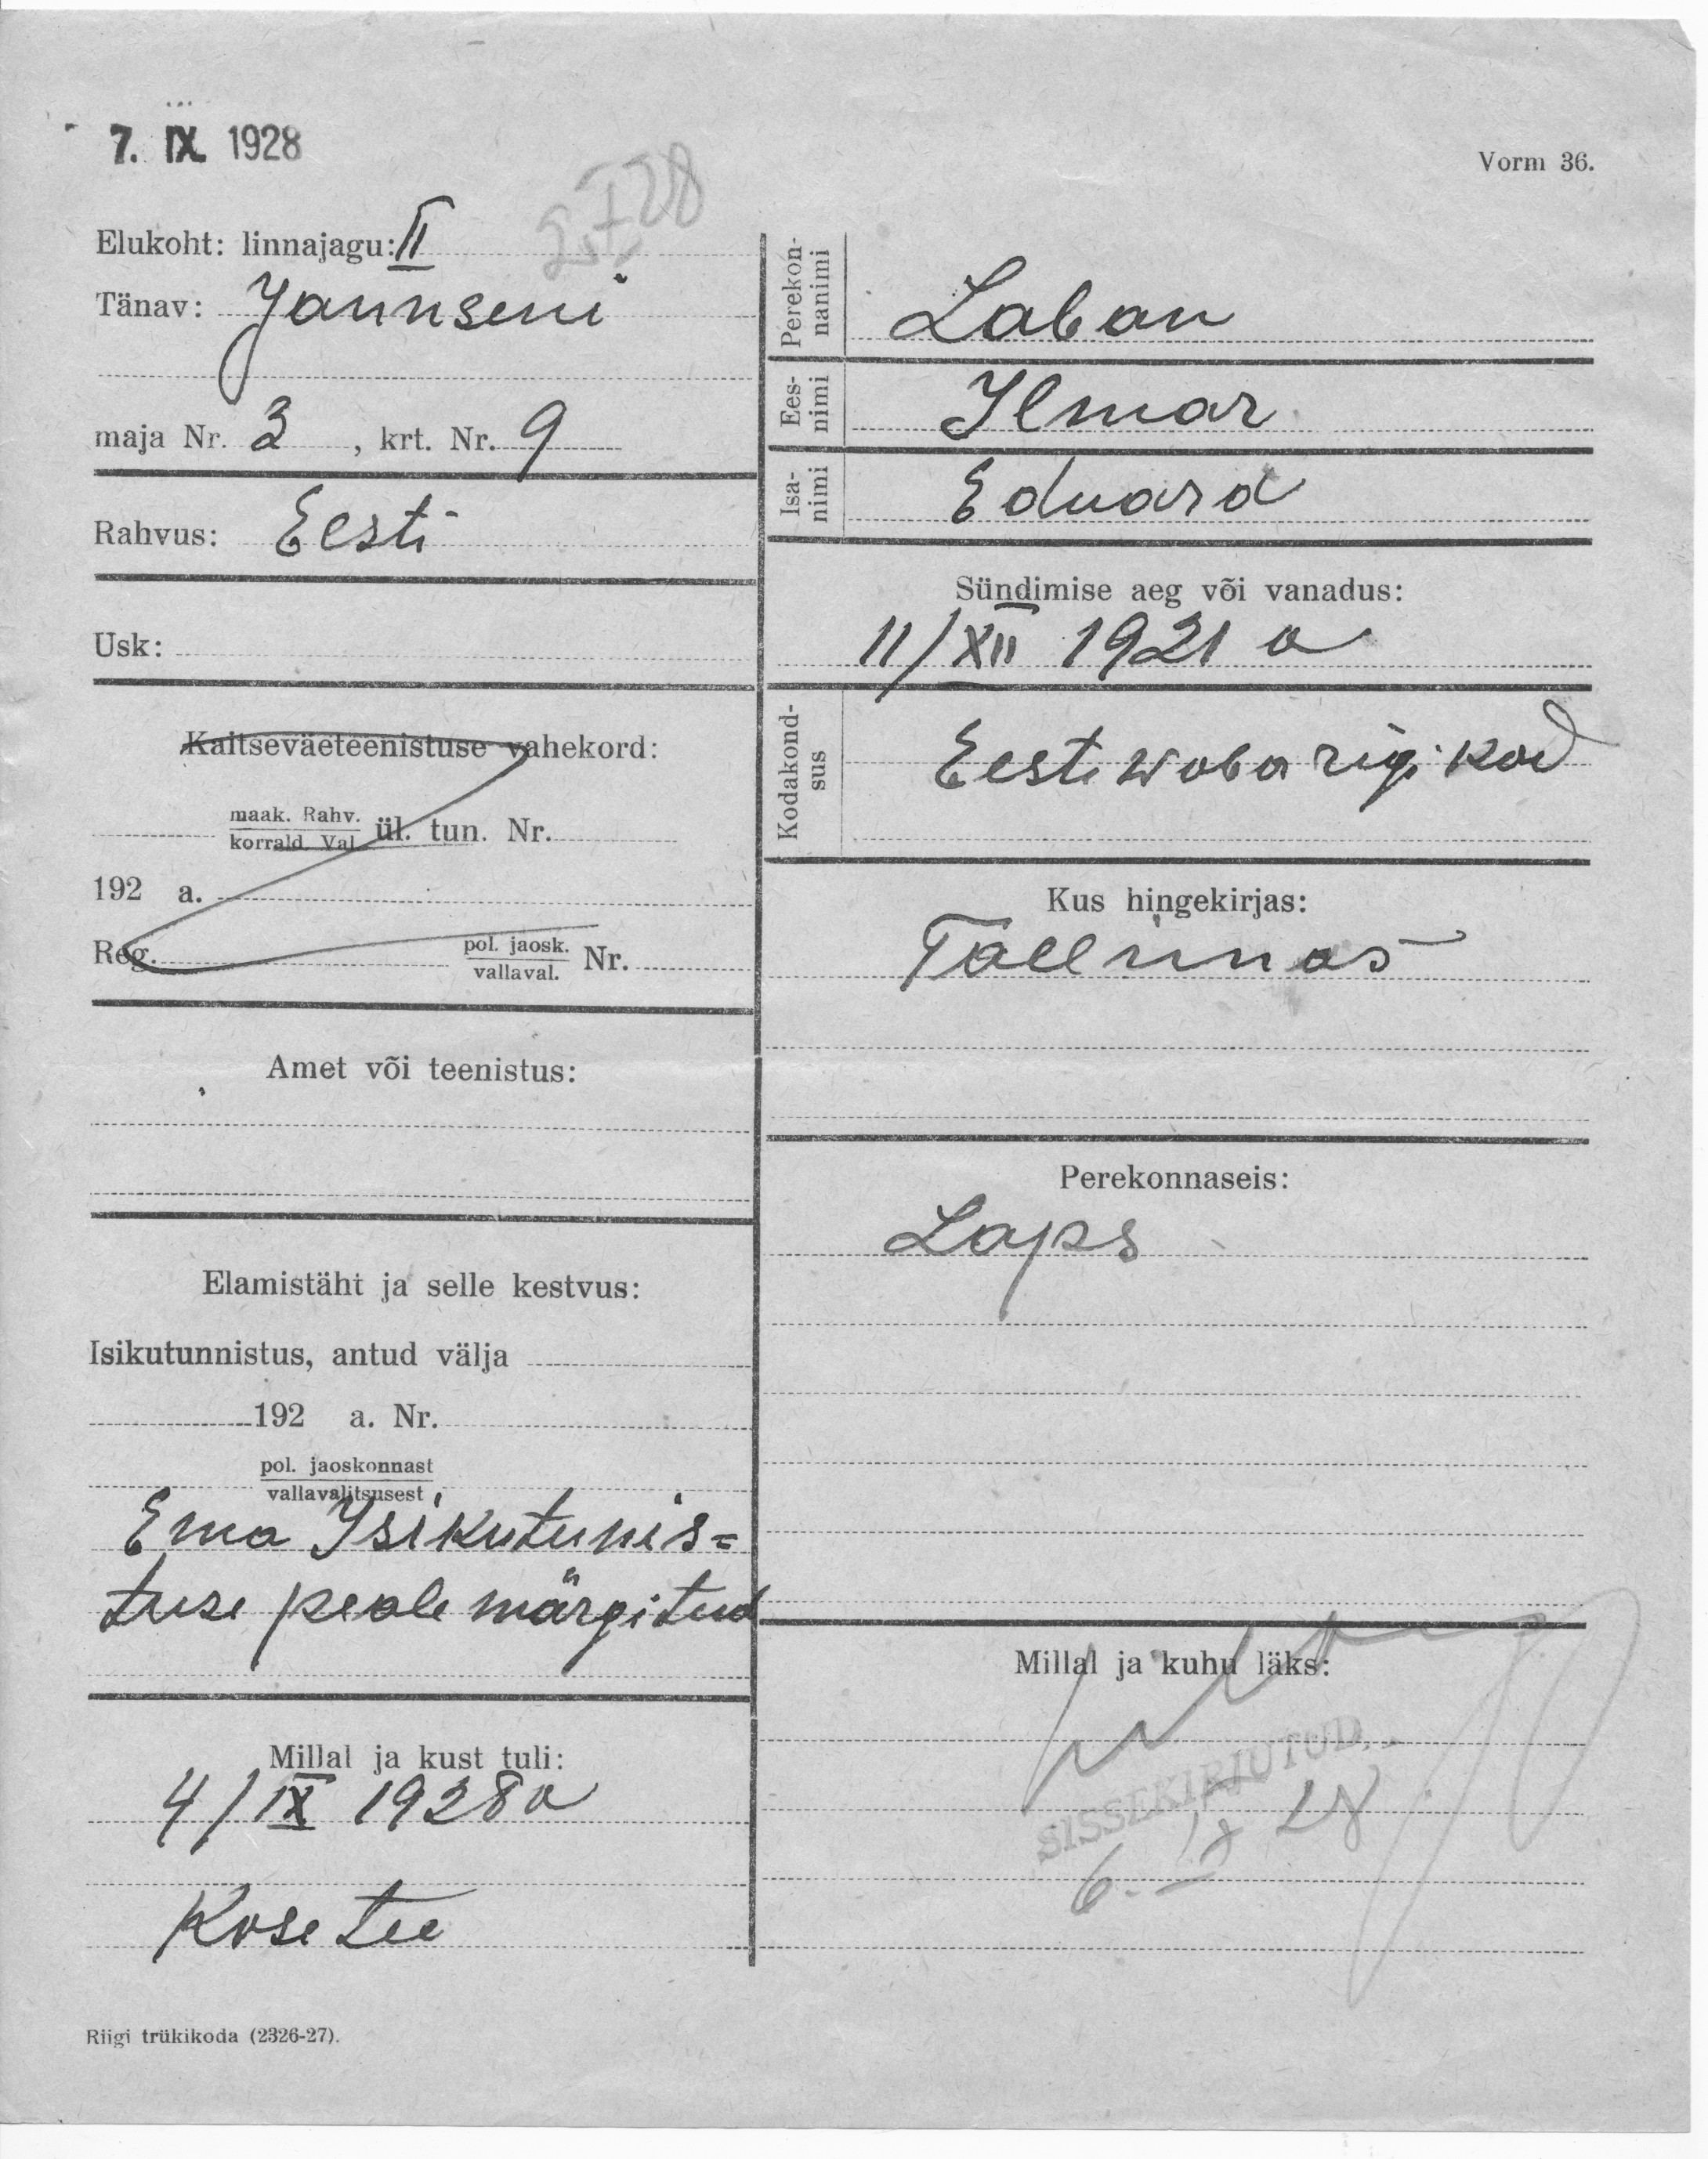 7. IX. 1928
Vorm 36.
Elukoht: linnajagu: II
Tänav: Jannseni
maja Nr. 3, krt. Nr. 9
Rahvus: Eesti
Usk:
Kaitseväeteenistuse vahekord:
maak. Rahv.
korrald. Val. ül. tun. Nr.
192 a.
Reg. pol. jaosk.
vallaval. Nr.
Amet või teenistus:
Elamistäht ja selle kestvus:
Isikutunnistus, antud välja
192 a. Nr.
pol. jaoskonnast
vallavalitsusest
Ema Isikutunis=
tuse peale märgitud
Millal ja kust tuli:
4/IX 1928 a
Kose tee
Perekon-
nanimi
Laban
Ees-
nimi
Ilmar
Isa-
nimi
Eduard
Sündimise aeg või vanadus:
11/XII 1921 a
Kodakond-
sus
Eesti wabarigi kod
Kus hingekirjas:
Tallinnas
Perekonnaseis:
Laps
Millal ja kuhu läks:
SISSEKIRJUTUD
6. IX 28
Riigi trükikoda (2326-27).